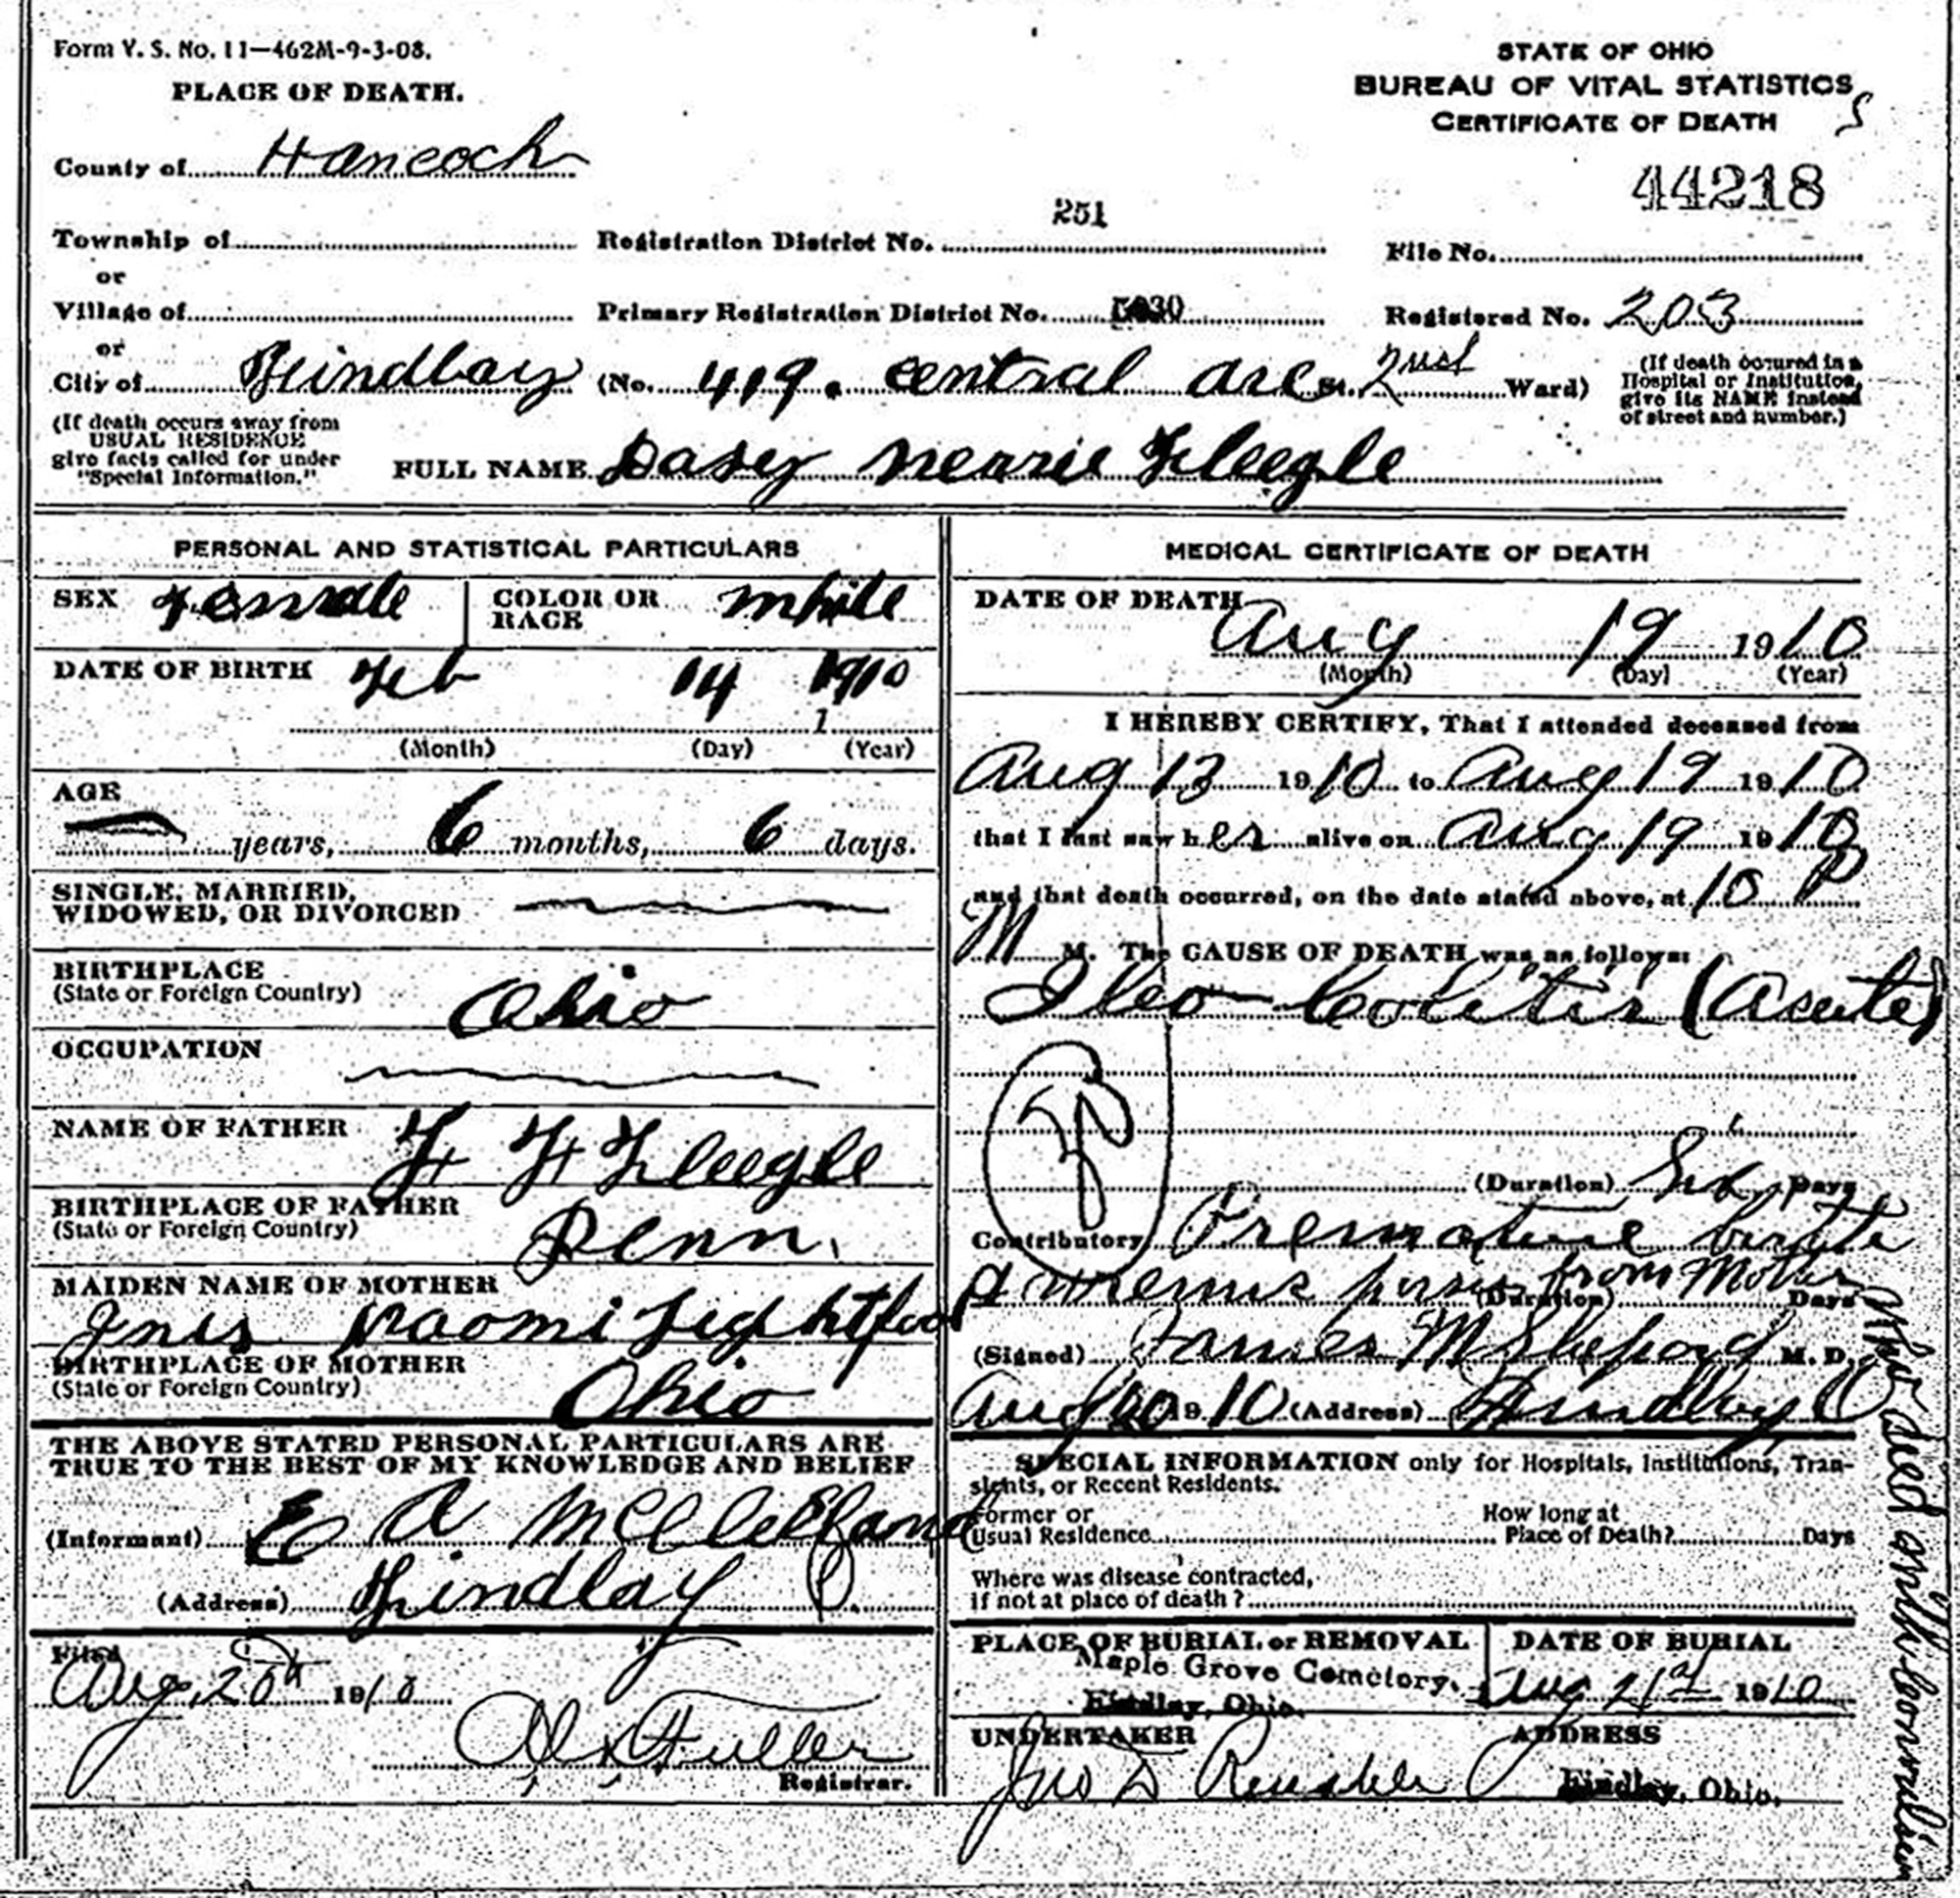 Form V. S. No. 11—462M-9-3-08.
STATE OF OHIO
BUREAU OF VITAL STATISTICS
CERTIFICATE OF DEATH
PLACE OF DEATH.
County of Hancock
44218
251
Township of Registration District No. File No.
or
Village of Primary Registration District No. Registered No. 203
or
City of Findlay (No. 419. Central ave St. 2nd Ward)
(If death occured in a
Hospital or Institution,
give its NAME instead
of street and number.)
(If death occurs away from
USUAL RESIDENCE
give facts called for under
"Special Information."
FULL NAME Fleegle
PERSONAL AND STATISTICAL PARTICULARS
SEX Female COLOR OR RACE White
DATE OF BIRTH Feb 14 1910
1
(Month) (Day) (Year)
AGE
years, 6 months, 6 days.
SINGLE, MARRIED,
WIDOWED, OR DIVORCED
BIRTHPLACE
(State or Foreign Country) Ohio
OCCUPATION
NAME OF FATHER Fleegle
BIRTHPLACE OF FATHER
(State or Foreign Country) Penn.
MAIDEN NAME OF MOTHER
Naomi Lightfoot
BIRTHPLACE OF MOTHER
(State or Foreign Country) Ohio
THE ABOVE STATED PERSONAL PARTICULARS ARE
TRUE TO THE BEST OF MY KNOWLEDGE AND BELIEF
(Informant) E A McClelland
(Address) Findlay O.
Filed
Aug. 20th 1910
Fuller
Registrar.
MEDICAL CERTIFICATE OF DEATH
DATE OF DEATH
Aug 19 1910
(Month) (Day) (Year)
I HEREBY CERTIFY, That I attended deceased from
Aug 13 1910 to Aug 19 1910
that I last saw her alive on Aug 19 1910
and that death occurred, on the date stated above, at 10 P
M M. The CAUSE OF DEATH was as follows:
Ileo-Colitis (Acute)
(Duration) Six Days
Contributory Premature birth
from Mother
(Duration) Days
(Signed) James M M. D.
Aug 20 1910 (Address) Findlay O
who died
SPECIAL INFORMATION only for Hospitals, Institutions, Tran-
sients, or Recent Residents.
Former or
Usual Residence
How long at
Place of Death? Days
Where was disease contracted,
if not at place of death?
PLACE OF BURIAL or REMOVAL
Maple Grove Cemetery.
Findlay, Ohio.
DATE OF BURIAL
Aug 21st 1910
UNDERTAKER
ADDRESS
Jno
Findlay, Ohio.